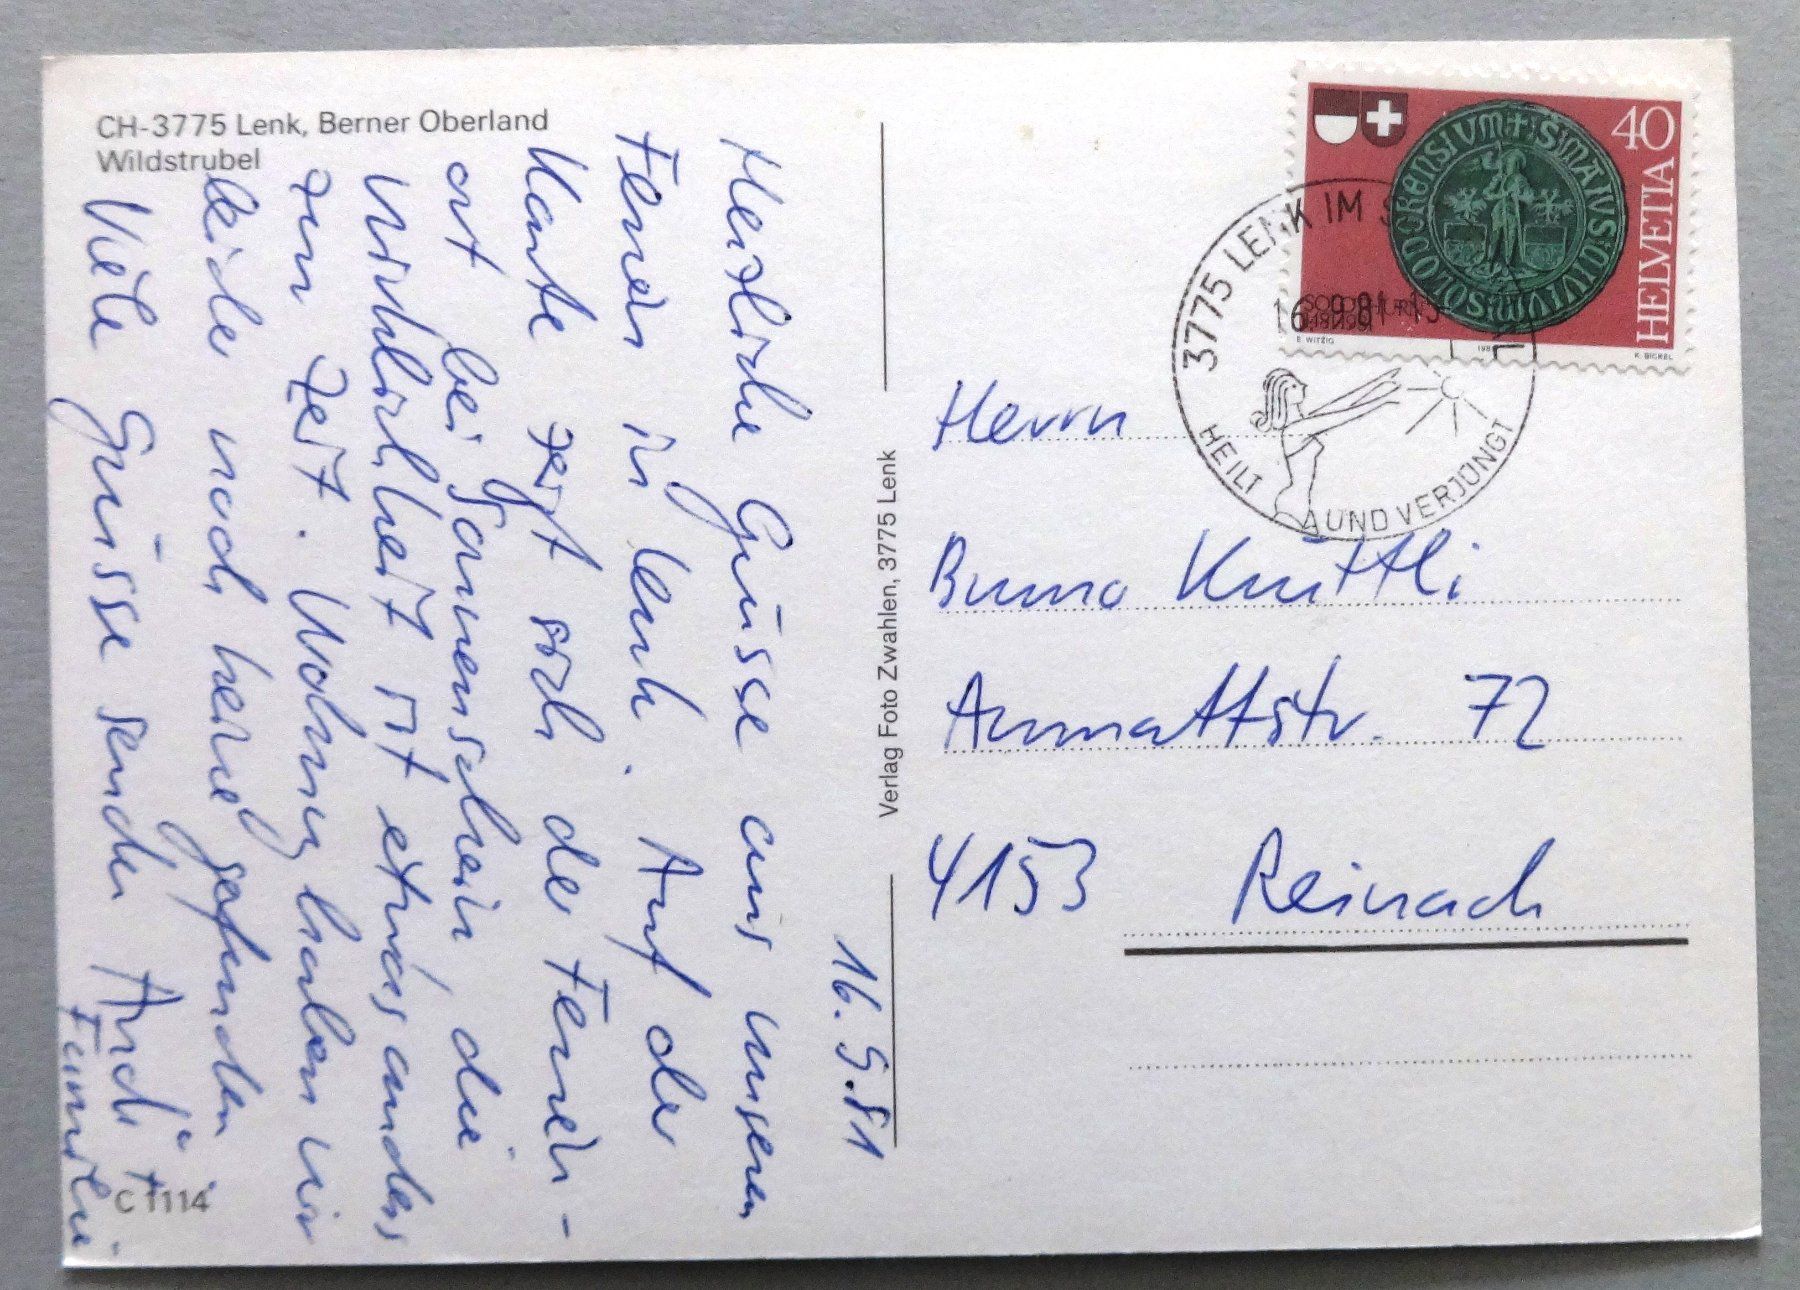 CH-3775 Lenk, Berner Oberland
Wildstrubel
16.9.81
Herzliche Grüsse aus unseren
Ferien in Lenk. Auf der
Karte zeigt sich der Ferien-
ort bei Sonnenschein, die
Wirklichkeit ist etwas anders
zur Zeit. Wohnung haben wir
leider noch keine gefunden.
Viele Grüsse senden
Familie
C 1114
Verlag Foto Zwahlen, 3775 Lenk
HELVETIA
40
E. WITZIG
K. BICKEL
3775 LENK IM
16.9.81
HEILT UND VERJÜNGT
Herrn
Bruno
72
4153 Reinach